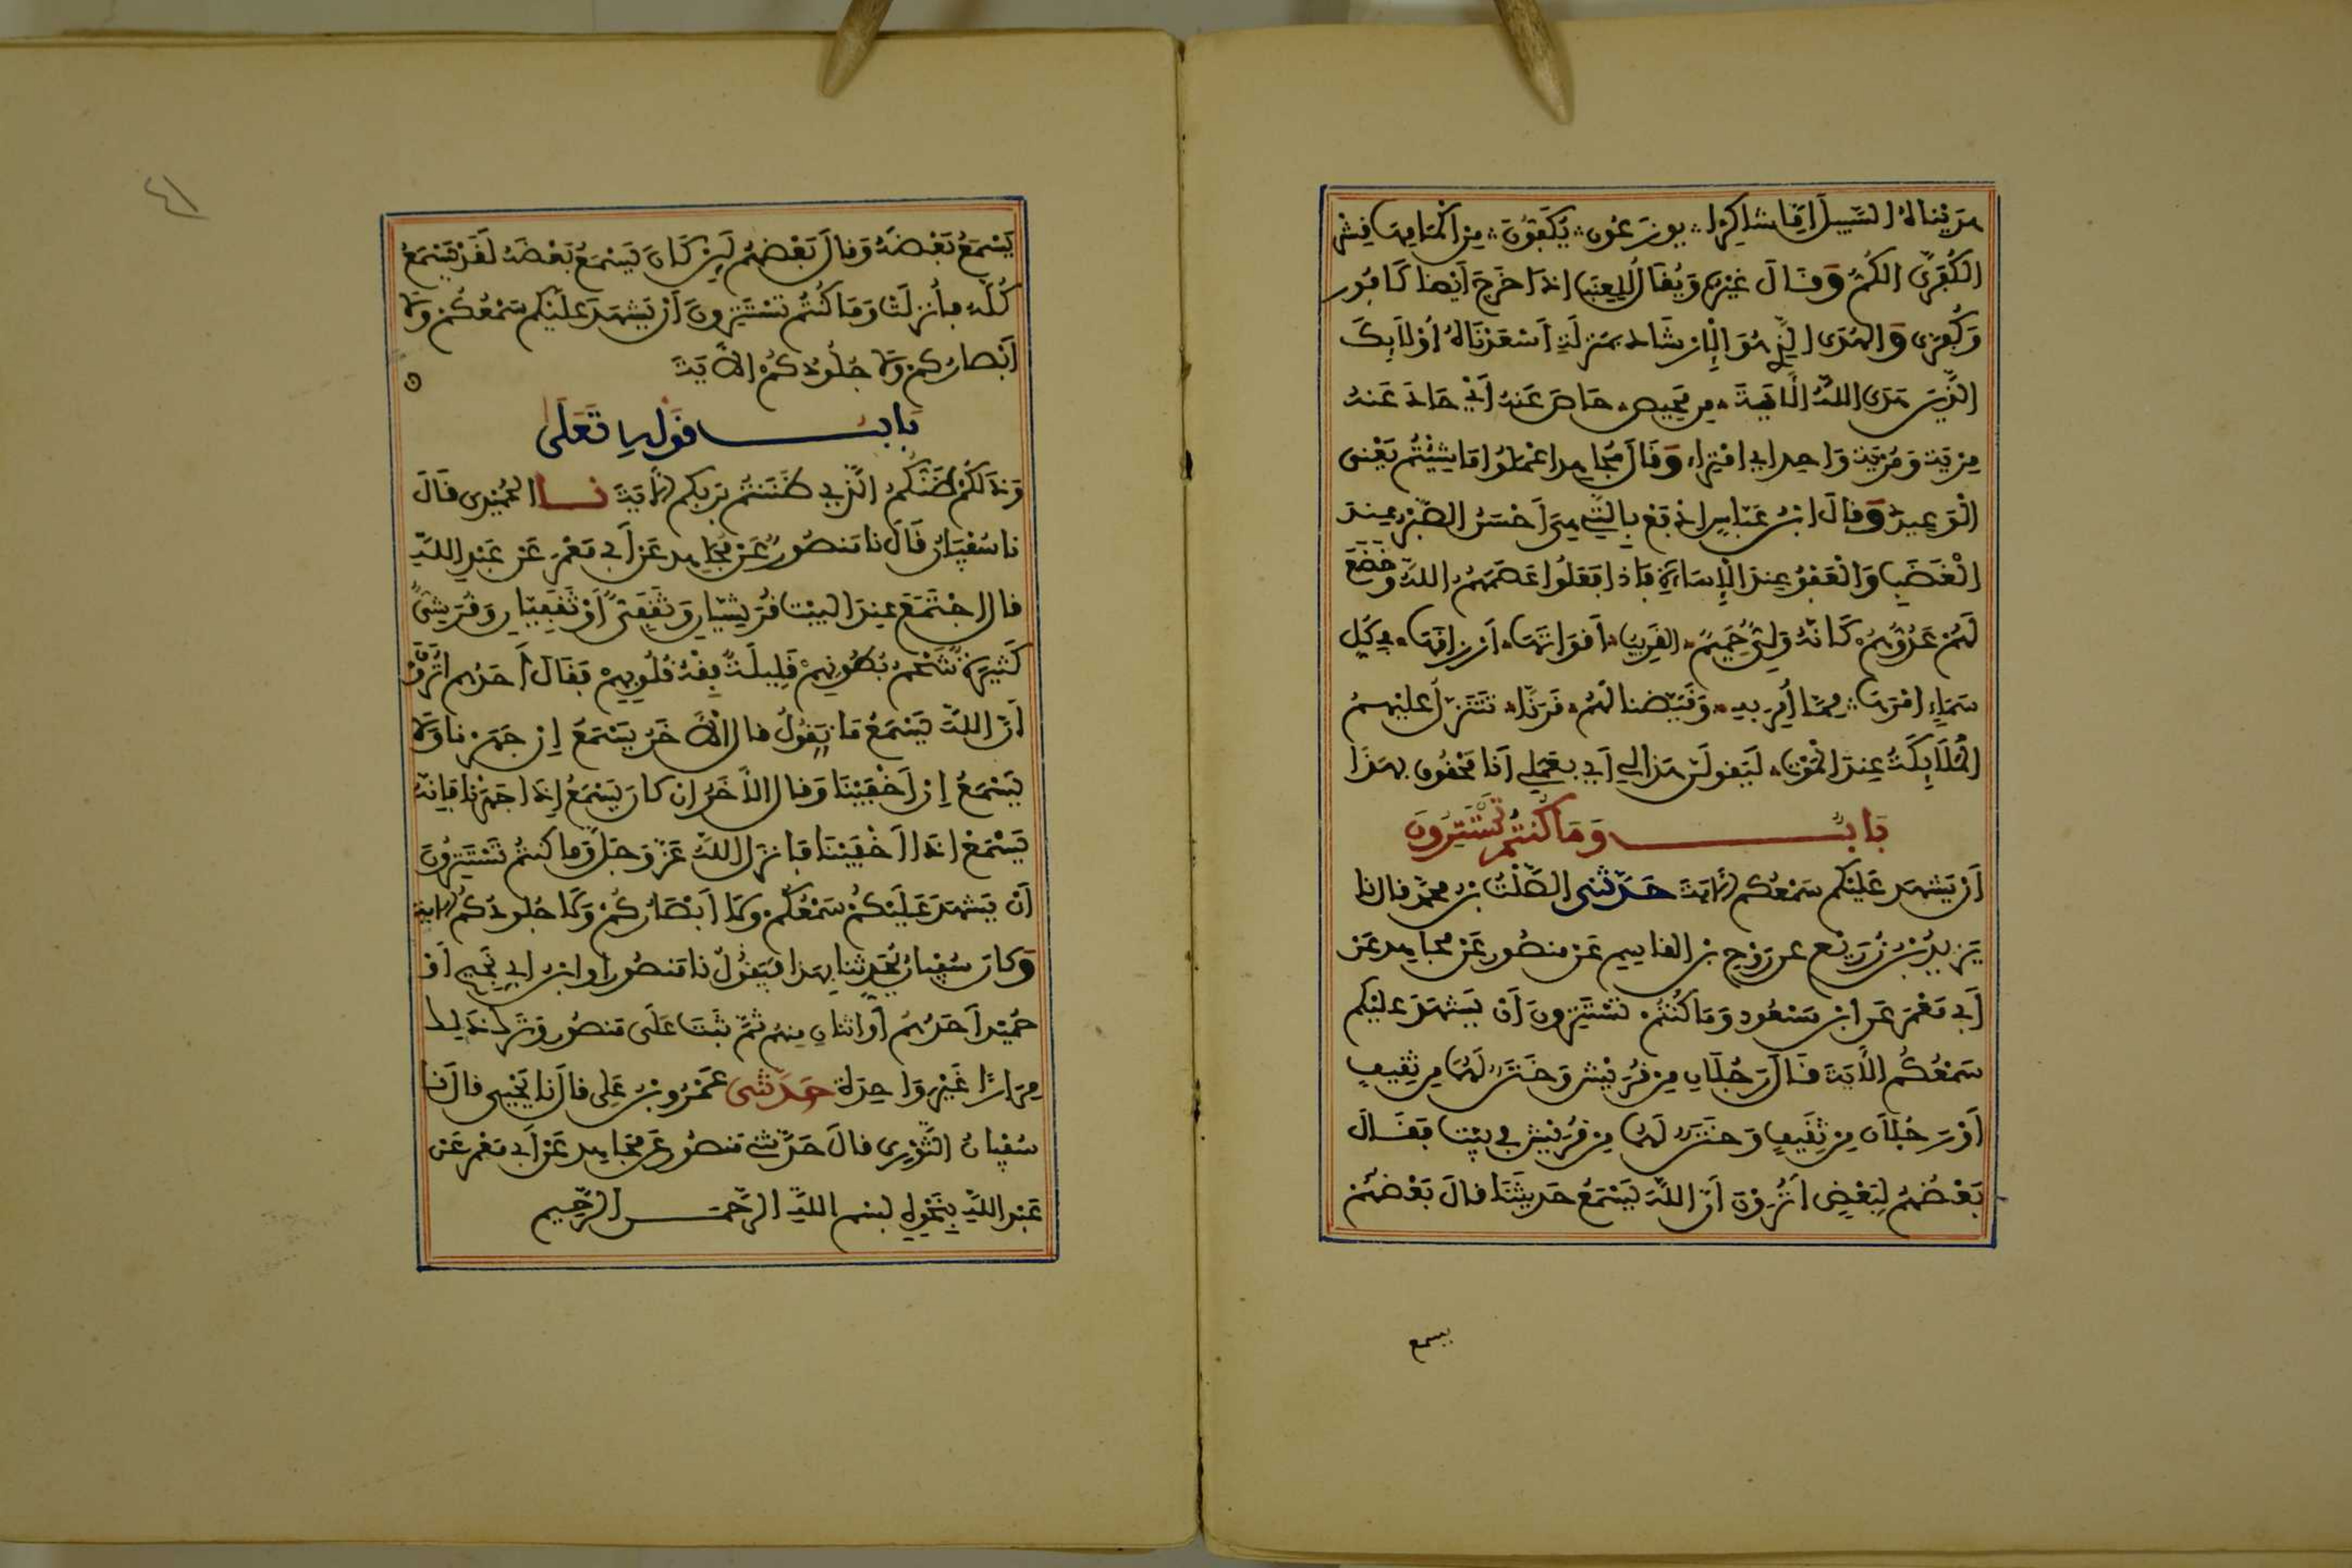 هديناه السبيل إما شاكرا يوزعون يكفون من أكمامها قشر
الكفرى الكم وقال غيره ويقال للعنب إذا خرج أيضا كافور
وكفرى والهدى الذي هو الإرشاد بمنزلة أسعدناه أولايك
الذين هدى الله الآية من محيص حاص عنه أي حاد عنه
مرية ومرية واحد أي امتراء وقال مجاهد اعملوا ما شئتم يعني
الوعيد وقال ابن عباس ادفع بالتي هي أحسن الصبر عند
الغضب والعفو عند الإساءة فإذا فعلوا عصمهم الله وخضع
لهم عدوهم كأنه ولي حميم القريب أقواتها أرزاقها في كل
سماء أمرها مما أمر به وقيضنا لهم قرناء تتنزل عليهم
الملايكة عند الموت ليقولن هذا لي أي بعملي أنا محقوق بهذا
باب وما كنتم تستترون
أن يشهد عليكم سمعكم الآية حدثني الصلت بن محمد قال نا
يزيد بن زريع عن روح بن القاسم عن منصور عن مجاهد عن
أبي معمر عن ابن مسعود وما كنتم تستترون أن يشهد عليكم
سمعكم الآية قال رجلان من قريش وختن لهما من ثقيف
أو رجلان من ثقيف وختن لهما من قريش في بيت فقال
بعضهم لبعض أترون أن الله يسمع حديثنا قال بعضهم
يسمع
٤١
يسمع بعضه وقال بعضهم لين كان يسمع بعضه لقد يسمع
كله فأنزلت وما كنتم تستترون أن يشهد عليكم سمعكم ولا
أبصاركم ولا جلودكم الآية
باب قوله تعلى
وذلكم ظنكم الذي ظننتم بربكم الآية نا الحميدي قال
نا سفيان قال نا منصور عن مجاهد عن أبي معمر عن عبد الله
قال اجتمع عند البيت قرشيان وثقفي أو ثقفيان وقرشي
كثيرة شحم بطونهم قليلة فقه قلوبهم فقال أحدهم أترون
أن الله يسمع ما نقول قال الآخر يسمع إن جهرنا ولا
يسمع إن أخفينا وقال الآخر إن كان يسمع إذا جهرنا فإنه
يسمع إذا أخفينا فأنزل الله عز وجل وما كنتم تستترون
أن يشهد عليكم سمعكم ولا أبصاركم ولا جلودكم الآية
وكان سفيان يحدثنا بهذا فيقول نا منصور أو ابن أبي نجيح أو
حميد أحدهم أو اثنان منهم ثم ثبت على منصور وترك ذلك
مرارا غير واحدة حدثني عمرو بن علي قال نا يحيى قال نا
سفيان الثوري قال حدثني منصور عن مجاهد عن أبي معمر عن
عبد الله بنحوه بسم الله الرحمن الرحيم